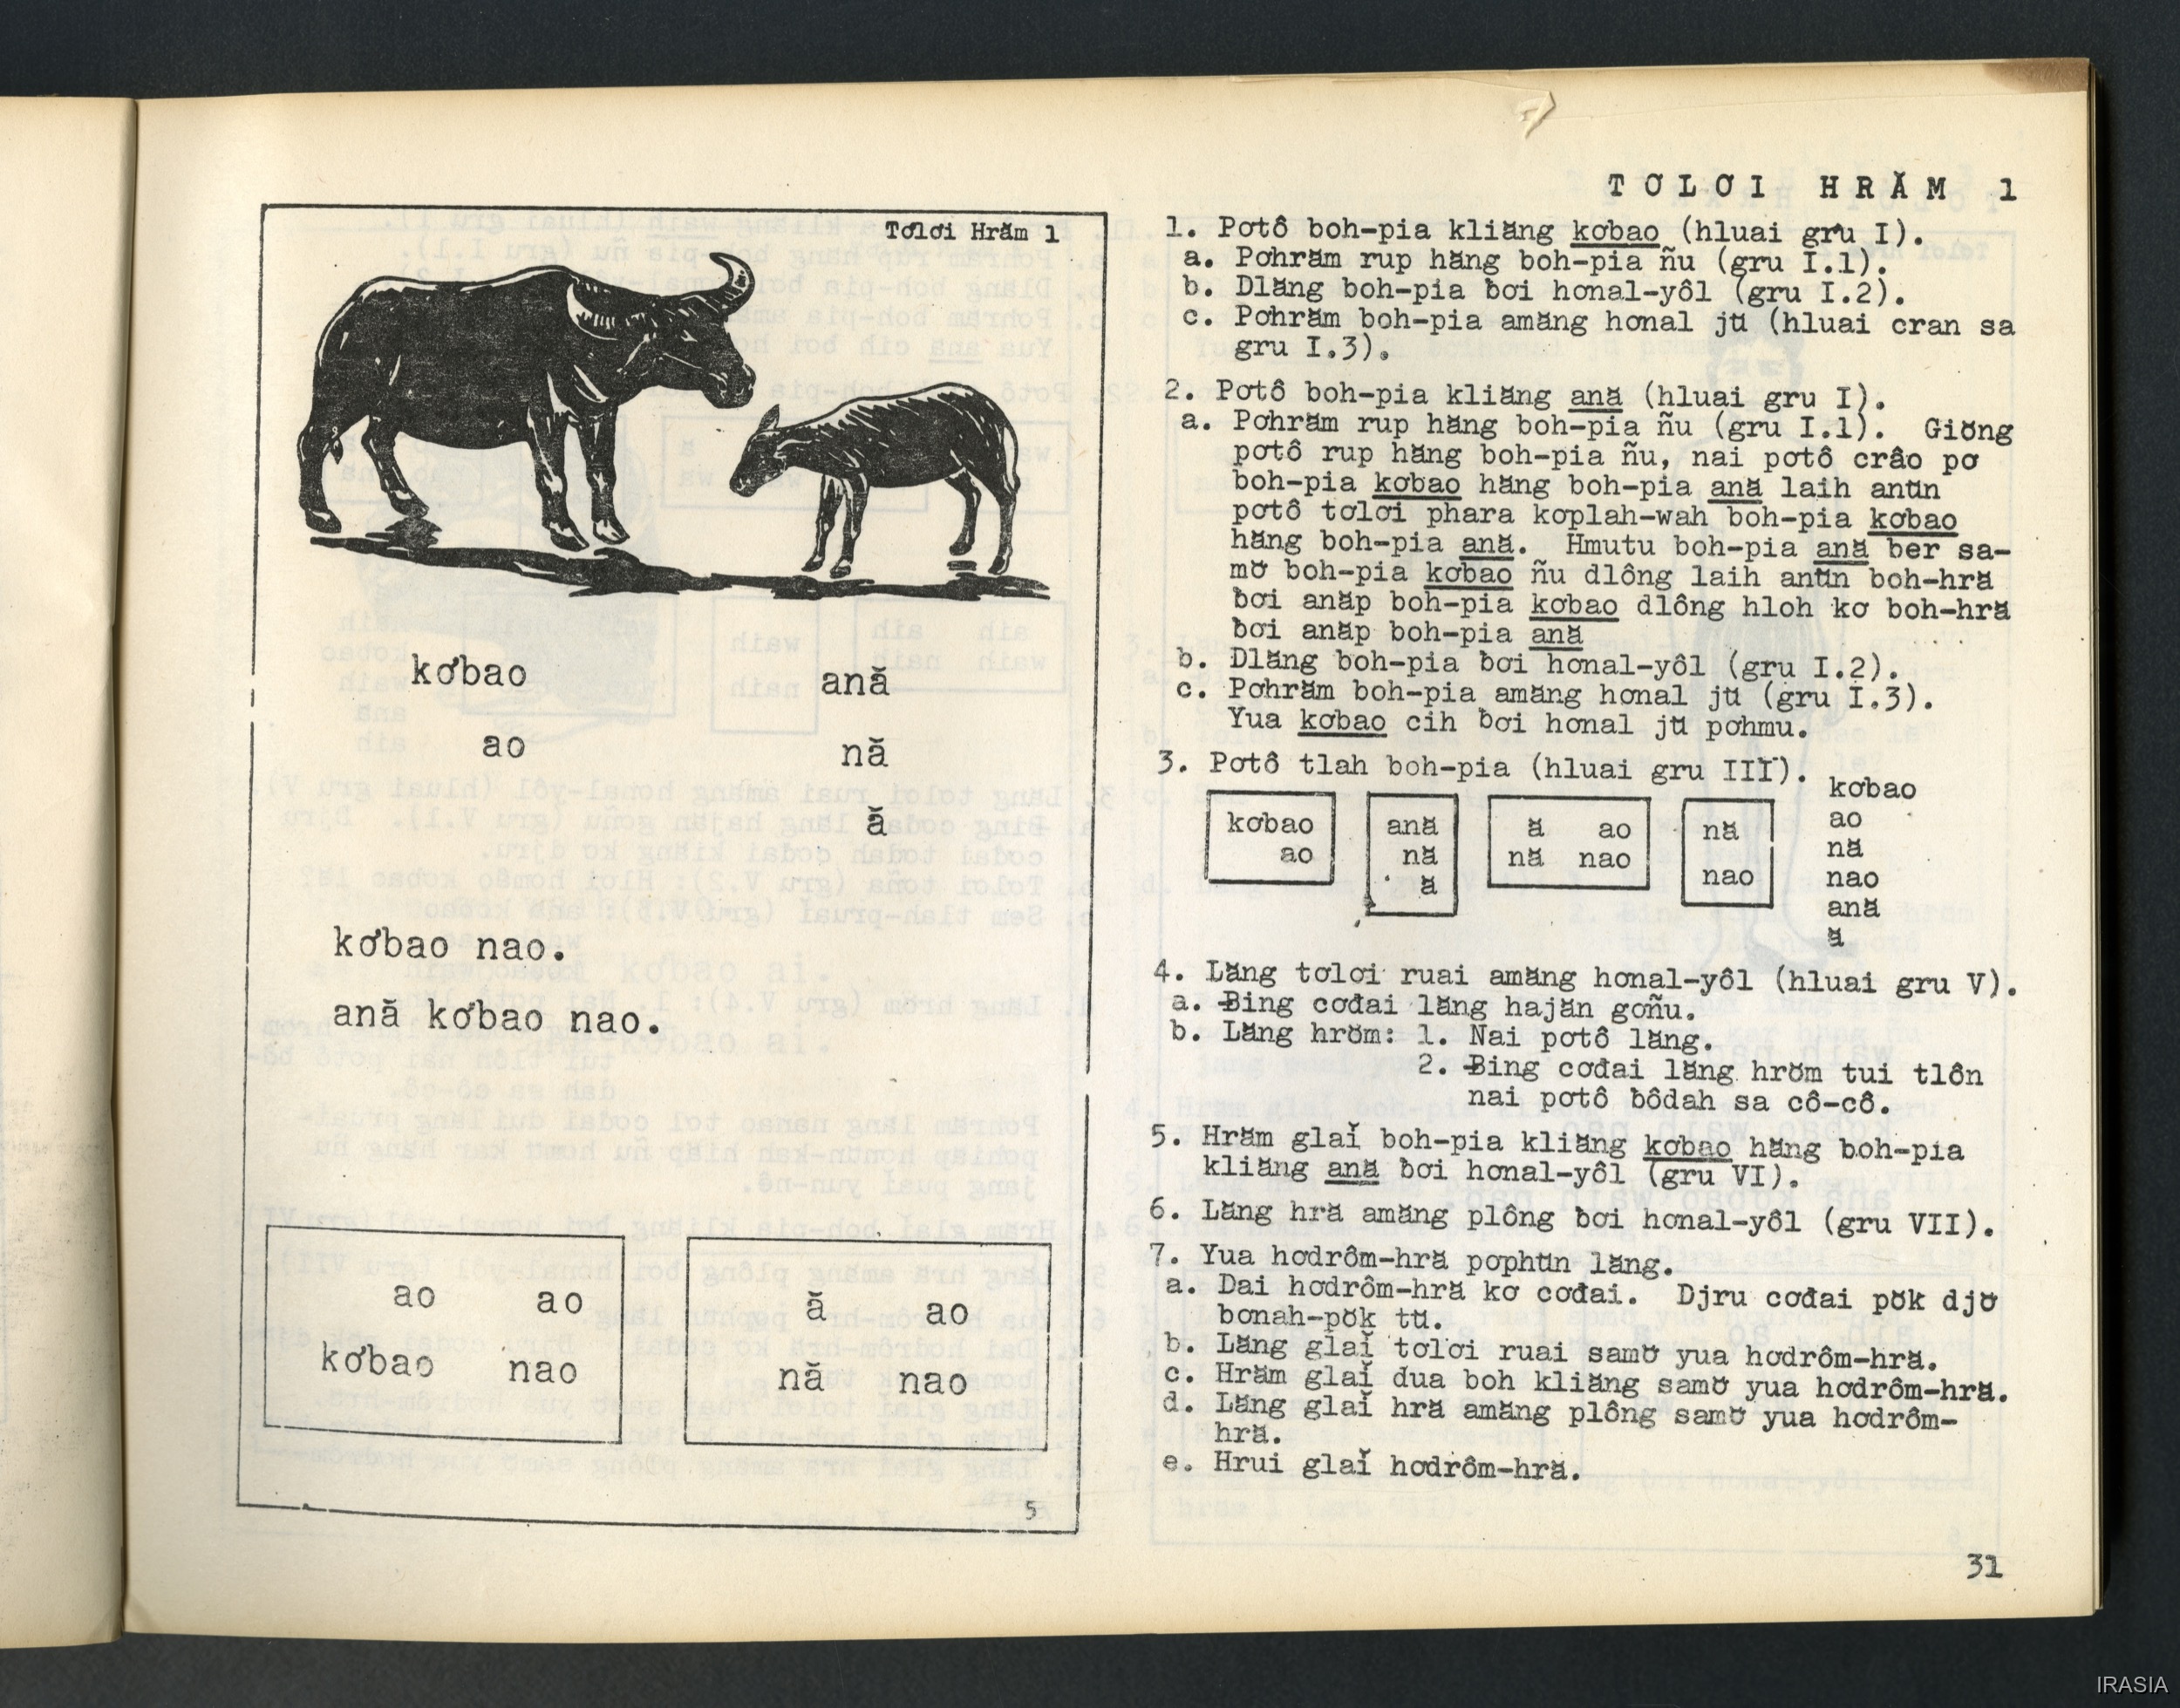 Tơlơi Hrăm 1
kơbao
ană
ao
nă
ă
kơbao nao.
ană kơbao nao.
ao ao
kơbao nao
ă ao
nă nao
5
TƠLƠI HRĂM 1
1. Pơtô boh-pia kliăng kơbao (hluai gru I).
a. Pơhrăm rup hăng boh-pia ñu (gru I.1).
b. Dlăng boh-pia ƀơi hơnal-yôl (gru I.2).
c. Pơhrăm boh-pia amăng hơnal jŭ (hluai cran sa
gru I.3).
2. Pơtô boh-pia kliăng ană (hluai gru I).
a. Pơhrăm rup hăng boh-pia ñu (gru I.1). Giŏng
pơtô rup hăng boh-pia ñu, nai pơtô crâo pơ
boh-pia kơbao hăng boh-pia ană laih anŭn
pơtô tơlơi phara kơplah-wah boh-pia kơbao
hăng boh-pia ană. Hmutu boh-pia ană ber sa-
mơ̆ boh-pia kơbao ñu dlông laih anŭn boh-hră
ƀơi anăp boh-pia kơbao dlông hloh kơ boh-hră
ƀơi anăp boh-pia ană
b. Dlăng boh-pia ƀơi hơnal-yôl (gru I.2).
c. Pơhrăm boh-pia amăng hơnal jŭ (gru I.3).
Yua kơbao cih ƀơi hơnal jŭ pơhmu.
3. Pơtô tlah boh-pia (hluai gru III).
kơbao
ao
ană
nă
ă
ă ao
nă nao
nă
nao
kơbao
ao
nă
nao
ană
ă
4. Lăng tơlơi ruai amăng hơnal-yôl (hluai gru V).
a. Ƀing cơđai lăng hajăn gơñu.
b. Lăng hrŏm: 1. Nai pơtô lăng.
2. Ƀing cơđai lăng hrŏm tui tlôn
nai pơtô ƀôdah sa cô-cô.
5. Hrăm glaĭ boh-pia kliăng kơbao hăng boh-pia
kliăng ană ƀơi hơnal-yôl (gru VI).
6. Lăng hră amăng plông ƀơi hơnal-yôl (gru VII).
7. Yua hơdrôm-hră pơphŭn lăng.
a. Dai hơdrôm-hră kơ cơđai. Djru cơđai pŏk djơ̆
bơnah-pŏk tŭ.
b. Lăng glaĭ tơlơi ruai samơ̆ yua hơdrôm-hră.
c. Hrăm glaĭ dua boh kliăng samơ̆ yua hơdrôm-hră.
d. Lăng glaĭ hră amăng plông samơ̆ yua hơdrôm-
hră.
e. Hrui glaĭ hơdrôm-hră.
31
IRASIA